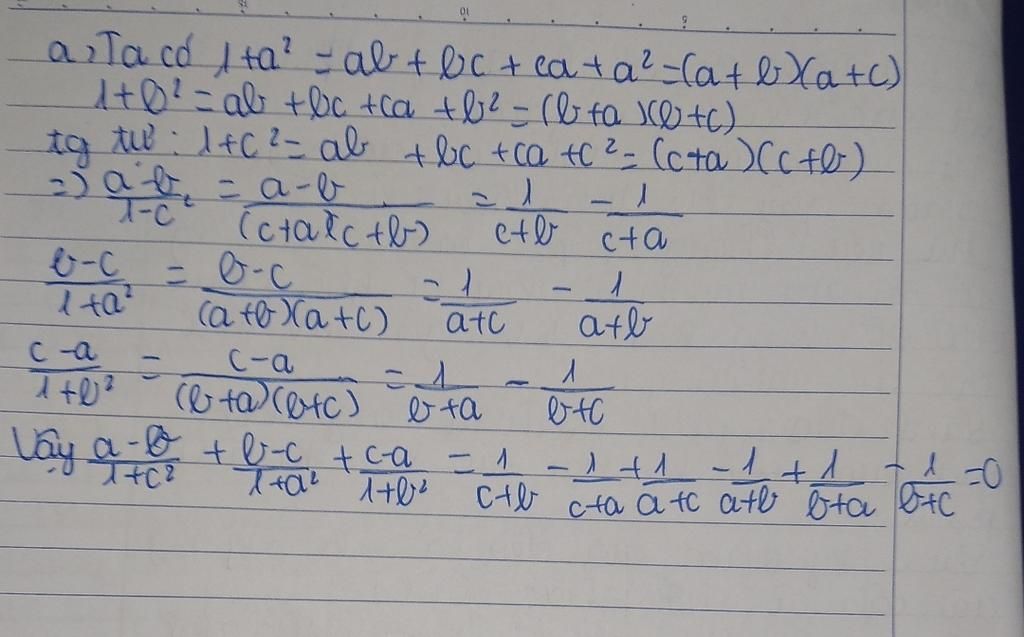 a, Ta có 1+a² = ab + bc + ca + a² = (a+b)(a+c)
1+b² = ab + bc + ca + b² = (b+a)(b+c)
tg tự : 1+c² = ab + bc + ca + c² = (c+a)(c+b)
=> a-b/1-c² = a-b/(c+a)(c+b) = 1/c+b - 1/c+a
b-c/1+a² = b-c/(a+b)(a+c) = 1/a+c - 1/a+b
c-a/1+b² = c-a/(b+a)(b+c) = 1/b+a - 1/b+c
Vậy a-b/1+c² + b-c/1+a² + c-a/1+b² = 1/c+b - 1/c+a + 1/a+c - 1/a+b + 1/b+a - 1/b+c = 0